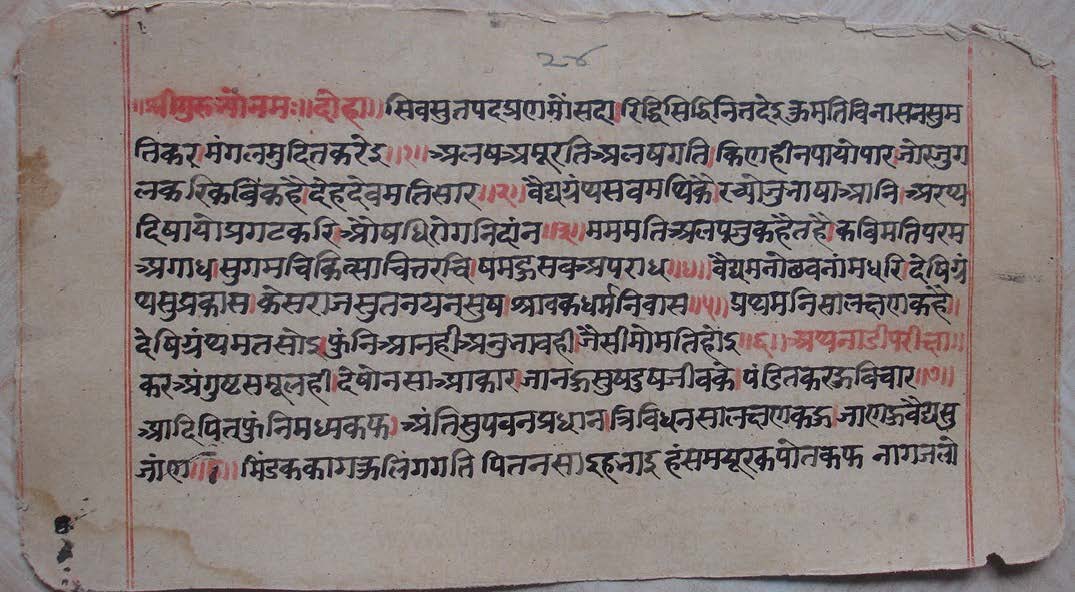 २४
श्रीगुरुभ्योनमः॥दोहा॥सिवसुतपदप्रणमौंसदा।रिद्धिसिद्धिनितदेइकुमतिविनासनसुम
तिकर।मंगलमुदितकरेइ॥१॥अलषअमूरतिअलषगति।किणहीनपायोपार।जोरजुग
लकरिकविकहै।देहदेवमतिसार॥२॥वैद्यग्रंथसबमथिकै।रच्योजुभाषाआनि।अरथ
दिषायोप्रगटकरि।औषधिरोगनिदांन॥३॥मममतिअलपजुकहतहै।कविमतिपरम
अगाध।सुगमचिकित्साचित्तरचि।षमहुसबअपराध॥४॥वैद्यमनोछवनांमधरि।देषिग्रं
थसुप्रकास।केसराजसुतनयनसुष।श्रावकधर्मनिवास॥५॥प्रथमनिसालछणकहै।
देषिग्रंथमतसोइ।फुंनिआनहीअनुभावही।जैसीमोमतिहोइ॥६॥अथनाडीपरीछा॥
करअंगुष्टसमूलही।देषोनसाआकार।जानहुसुषदुषजीवको।पंडितकरहुविचार॥७॥
आदिपितफुंनिमध्यकफ।अंतिसुपवनप्रधान।त्रिविधनसालछणकहु।जाणहुवैद्यसु
जांण॥८॥मिंडककागकुलिंगगति पितनसाइहभाइ हंसमयूरकपोतकफ नागजलो